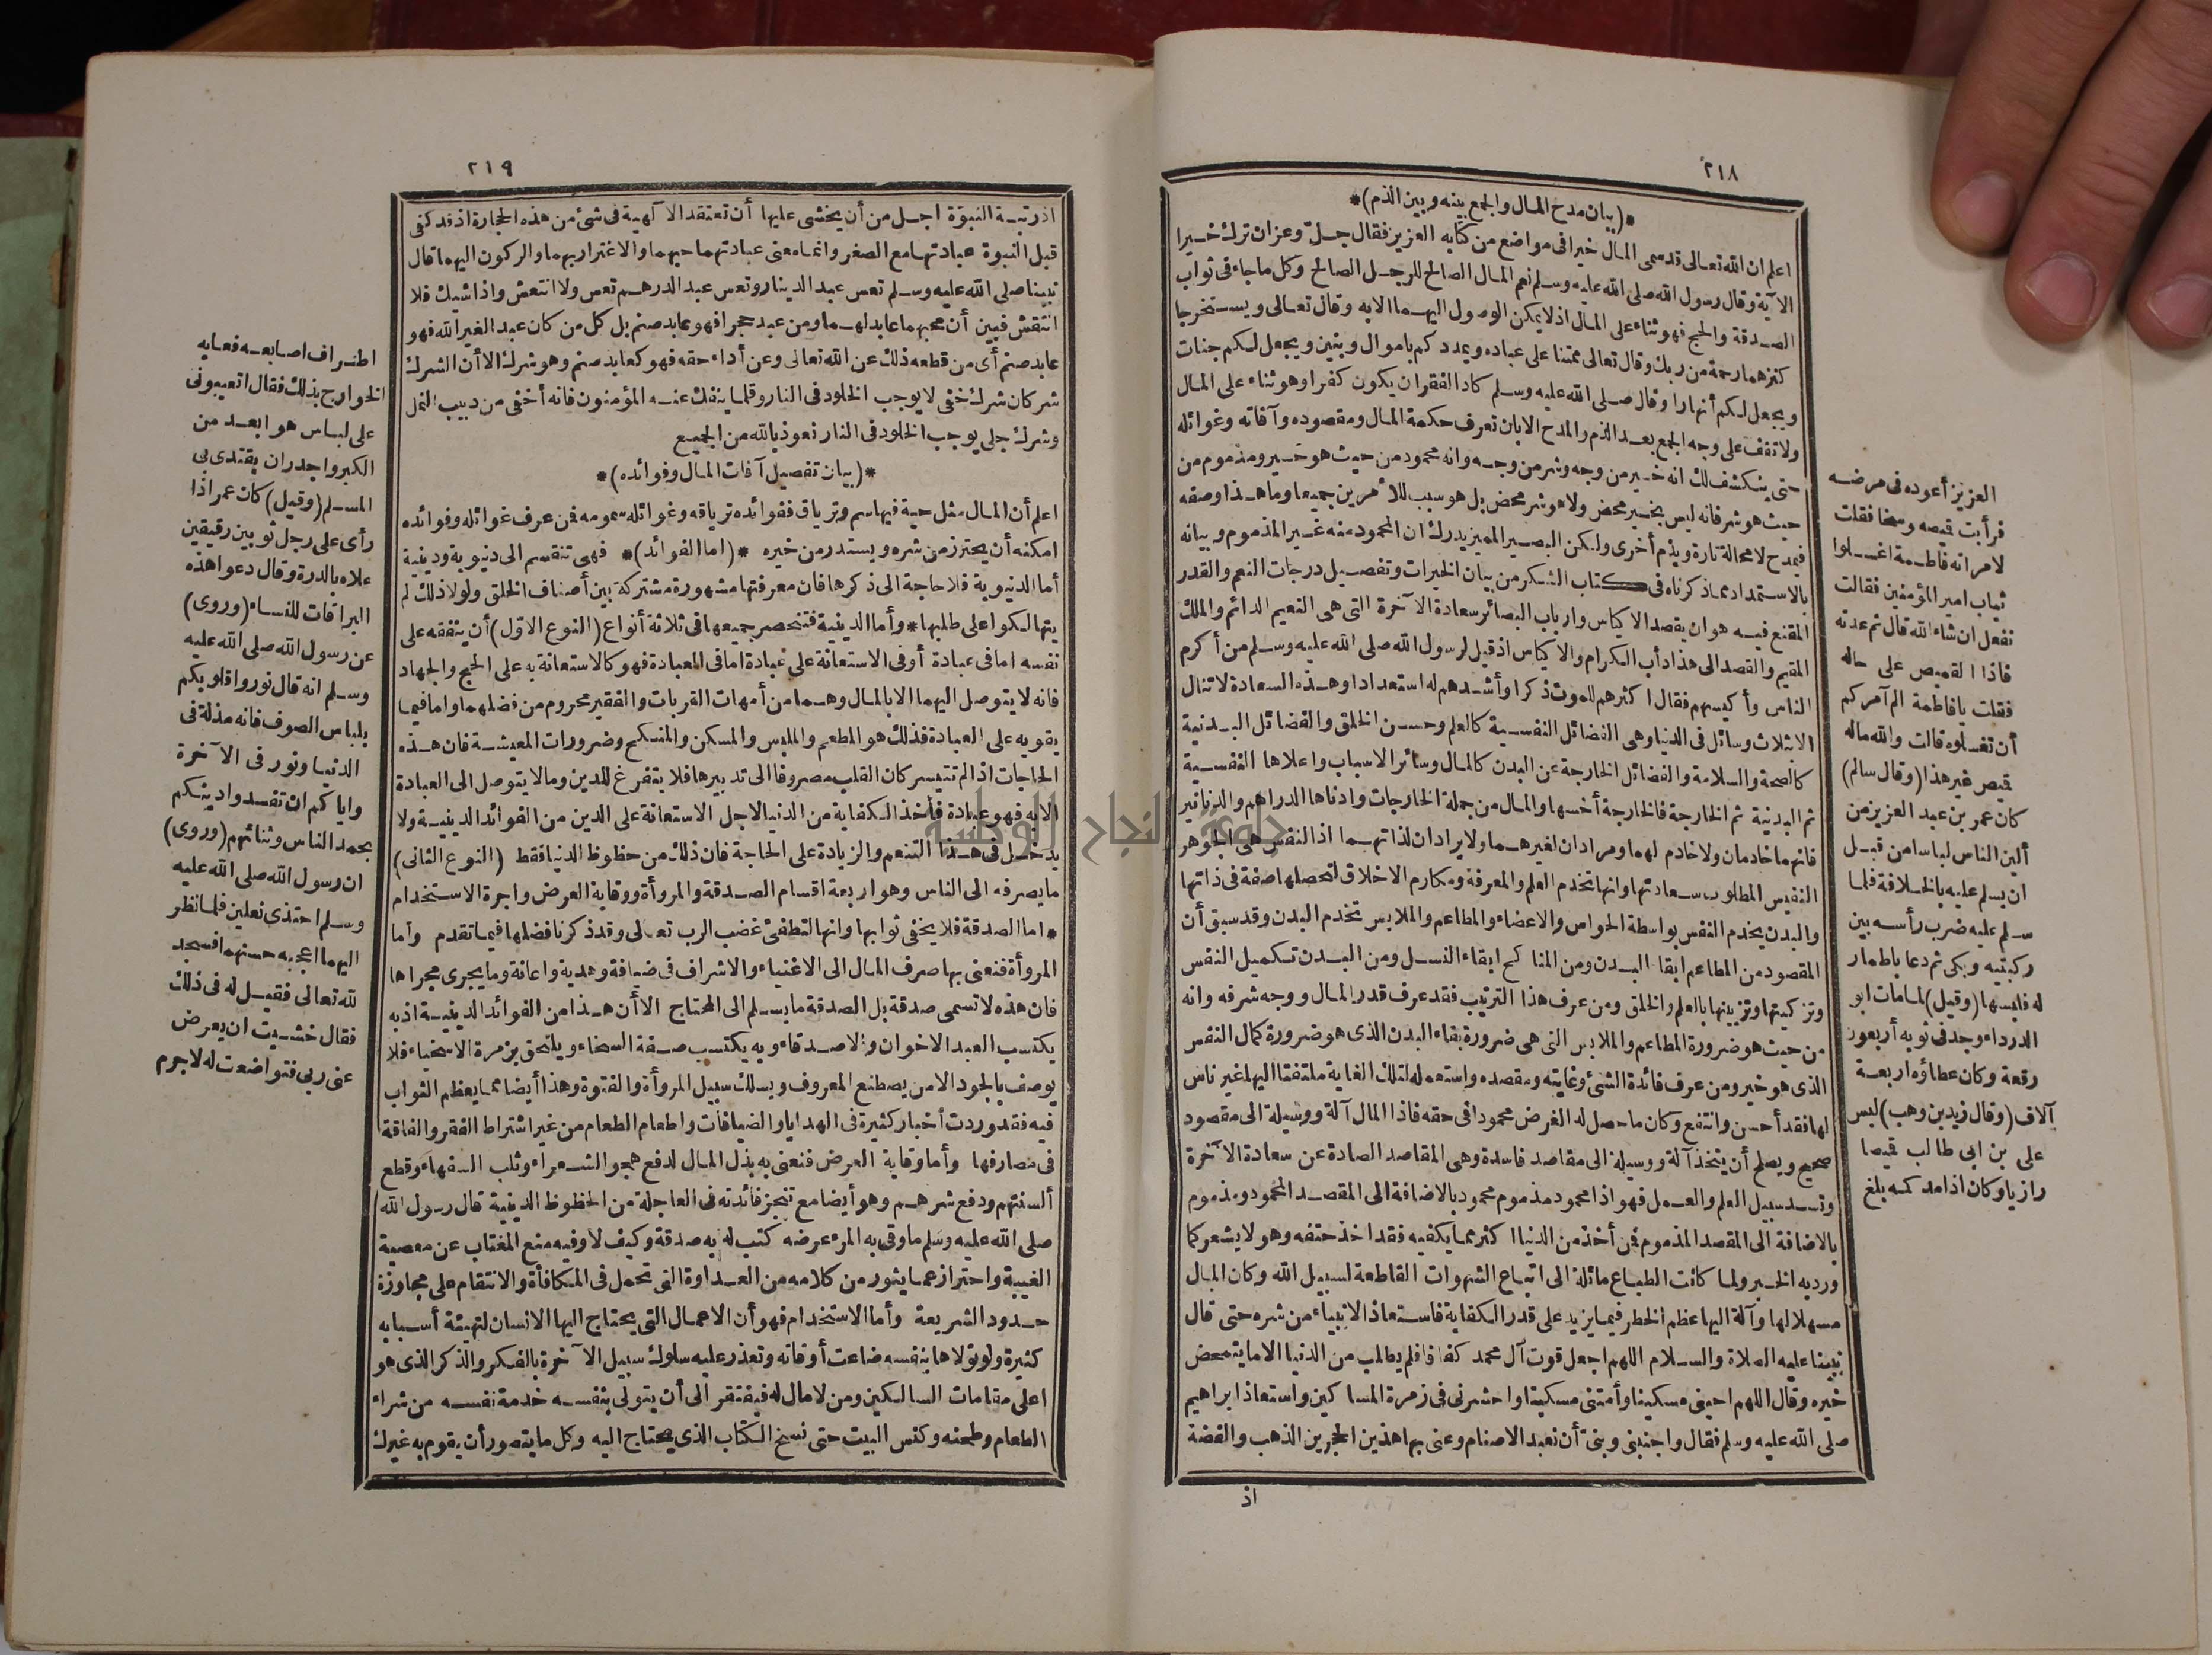 ٢١٨
*(بيان مدح المال والجمع بينه وبين الذم)*
اعلم ان الله تعالى قد سمى المال خيرا فى مواضع من كتابه العزيز فقال جل وعز ان ترك خيرا
الآية وقال رسول الله صلى الله عليه وسلم نعم المال الصالح للرجل الصالح وكل ما جاء فى ثواب
الصدقة والحج فهو ثناء على المال اذ لا يمكن الوصول اليهما الا به وقال تعالى ويستخرجا
كنزهما رحمة من ربك وقال تعالى ممتنا على عباده ويمددكم باموال وبنين ويجعل لكم جنات
ويجعل لكم أنهارا وقال صلى الله عليه وسلم كاد الفقر ان يكون كفرا وهو ثناء على المال
ولا تقف على وجه الجمع بعد الذم والمدح الا بان تعرف حكمة المال ومقصوده وآفاته وغوائله
حتى ينكشف لك انه خير من وجه وشر من وجه وانه محمود من حيث هو خير ومذموم من
حيث هو شر فانه ليس بخير محض ولا هو شر محض بل هو سبب للأمرين جميعا وما هذا وصفه
فيمدح لا محالة تارة ويذم أخرى ولكن البصير المميز يدرك ان المحمود منه غير المذموم وبيانه
بالاستمداد مما ذكرناه فى كتاب الشكر من بيان الخيرات وتفصيل درجات النعم والقدر
المقنع فيه هو ان يقصد الاكياس وارباب البصائر سعادة الآخرة التى هى النعيم الدائم والملك
المقيم والقصد الى هذا دأب الكرام والاكياس اذ قيل لرسول الله صلى الله عليه وسلم من أكرم
الناس وأكيسهم فقال اكثرهم للموت ذكرا وأشدهم له استعدادا وهذه السعادة لا تنال
الا بثلاث وسائل فى الدنيا وهى الفضائل النفسية كالعلم وحسن الخلق والفضائل البدنية
كالصحة والسلامة والفضائل الخارجة عن البدن كالمال وسائر الاسباب واعلاها النفسية
ثم البدنية ثم الخارجة فالخارجة أخسها والمال من جملة الخارجات وادناها الدراهم والدنانير
فانهما خادمان ولا خادم لهما ومرادان لغيرهما ولا يرادان لذاتهما اذ النفس هى الجوهر
النفيس المطلوب سعادتها وانها تخدم العلم والمعرفة ومكارم الاخلاق لتحصلها صفة فى ذاتها
والبدن يخدم النفس بواسطة الحواس والاعضاء والمطاعم والملابس تخدم البدن وقد سبق أن
المقصود من المطاعم ابقاء البدن ومن المناكح ابقاء النسل ومن البدن تكميل النفس
وتزكيتها وتزيينها بالعلم والخلق ومن عرف هذا الترتيب فقد عرف قدر المال ووجه شرفه وانه
من حيث هو ضرورة المطاعم والملابس التى هى ضرورة بقاء البدن الذى هو ضرورة كمال النفس
الذى هو خير ومن عرف فائدة الشئ وغايته ومقصده واستعمله لتلك الغاية ملتفتا اليها غير ناس
لها فقد أحسن وانتفع وكان ما حصل له الغرض محمودا فى حقه فاذا المال آلة ووسيلة الى مقصود
صحيح ويصلح أن يتخذ آلة ووسيلة الى مقاصد فاسدة وهى المقاصد الصادة عن سعادة الآخرة
وتسد سبيل العلم والعمل فهو اذا محمود مذموم محمود بالاضافة الى المقصد المحمود ومذموم
بالاضافة الى المقصد المذموم فمن أخذ من الدنيا اكثر مما يكفيه فقد اخذ حتفه وهو لا يشعر كما
ورد به الخبر ولما كانت الطباع مائلة الى اتباع الشهوات القاطعة لسبيل الله وكان المال
مسهلا لها وآلة اليها عظم الخطر فيما يزيد على قدر الكفاية فاستعاذ الانبياء من شره حتى قال
نبينا عليه الصلاة والسلام اللهم اجعل قوت آل محمد كفافا فلم يطلب من الدنيا الا ما يتمحض
خيره وقال اللهم احينى مسكينا وأمتنى مسكينا واحشرنى فى زمرة المساكين واستعاذ ابراهيم
صلى الله عليه وسلم فقال واجنبنى وبنىّ أن نعبد الاصنام وعنى بها هذين الحجرين الذهب والفضة
اذ
العزيز أعوده فى مرضه
فرأيت قيصه وسخا فقلت
لامرأته فاطمة اغسلوا
ثياب امير المؤمنين فقالت
نفعل ان شاء الله قال ثم عدته
فاذا القميص على حاله
فقلت يا فاطمة الم آمركم
أن تغسلوه قالت والله ماله
قيص غير هذا (وقال سالم)
كان عمر بن عبد العزيز من
ألين الناس لباسا من قبل
ان يسلم عليه بالخلافة فلما
سلم عليه ضرب رأسه بين
ركبتيه وبكى ثم دعا باطمار
له فلبسها (وقيل) لما مات ابو
الدرداء وجد فى ثوبه أربعون
رقعة وكان عطاؤه اربعة
آلاف (وقال زيد بن وهب) لبس
على بن ابى طالب قيصا
رازيا وكان اذا مد كمه بلغ
٢١٩
اذ رتبة النبوّة اجل من أن يخشى عليها أن تعتقد الآلهية فى شئ من هذه الحجارة اذ قد كفى
قبل النبوة عبادتها مع الصغر وانما معنى عبادتهما حبهما والاغترار بهما والركون اليهما قال
نبينا صلى الله عليه وسلم تعس عبد الدينار وتعس عبد الدرهم تعس ولا انتعش واذا شيك فلا
انتقش فبين أن محبهما عابد لهما ومن عبد حجرا فهو عابد صنم بل كل من كان عبد الغير الله فهو
عابد صنم أى من قطعه ذلك عن الله تعالى وعن أداء حقه فهو كعابد صنم وهو شرك الا أن الشرك
شركان شرك خفى لا يوجب الخلود فى النار وقلما ينفك عنه المؤمنون فانه أخفى من دبيب النمل
وشرك جلى يوجب الخلود فى النار نعوذ بالله من الجميع
*(بيان تفصيل آفات المال وفوائده)*
اعلم أن المال مثل حية فيها سم وترياق ففوائده ترياقه وغوائله سمومه فمن عرف غوائله وفوائده
امكنه أن يحترز من شره ويستدر من خيره *(اما الفوائد)* فهى تنقسم الى دنيوية ودينية
أما الدنيوية فلا حاجة الى ذكرها فان معرفتها مشهورة مشتركة بين أصناف الخلق ولولا ذلك لم
يتهالكوا على طلبها* وأما الدينية فتنحصر جميعها فى ثلاثة أنواع (النوع الاوّل) أن ينفقه على
نفسه اما فى عبادة أو فى الاستعانة على عبادة اما فى العبادة فهو كالاستعانة به على الحج والجهاد
فانه لا يتوصل اليهما الا بالمال وهما من أمهات القربات والفقير محروم من فضلهما واما فيما
يقويه على العبادة فذلك هو المطعم والملبس والمسكن والمنكح وضرورات المعيشة فان هذه
الحاجات اذا لم تتيسر كان القلب مصروفا الى تدبيرها فلا يتفرغ للدين وما لا يتوصل الى العبادة
الا به فهو عبادة فأخذ الكفاية من الدنيا لاجل الاستعانة على الدين من الفوائد الدينية ولا
يدخل فى هذا التنعم والزيادة على الحاجة فان ذلك من حظوظ الدنيا فقط (النوع الثانى)
ما يصرفه الى الناس وهو اربعة اقسام الصدقة والمروأة ووقاية العرض واجرة الاستخدام
*اما الصدقة فلا يخفى ثوابها وانها لتطفئ غضب الرب تعالى وقد ذكرنا فضلها فيما تقدم وأما
المروأة فنعنى بها صرف المال الى الاغنياء والاشراف فى ضيافة وهدية واعانة وما يجرى مجراها
فان هذه لا تسمى صدقة بل الصدقة ما يسلم الى المحتاج الا أن هذا من الفوائد الدينية اذ به
يكتسب العبد الاخوان والاصدقاء وبه يكتسب صفة السخاء ويلتحق بزمرة الاسخياء فلا
يوصف بالجود الا من يصطنع المعروف ويسلك سبيل المروأة والفتوة وهذا أيضا مما يعظم الثواب
فيه فقد وردت أخبار كثيرة فى الهدايا والضيافات واطعام الطعام من غير اشتراط الفقر والفاقة
فى مصارفها وأما وقاية العرض فنعنى به بذل المال لدفع هجو الشعراء وثلب السفهاء وقطع
ألسنتهم ودفع شرهم وهو أيضا مع تنجز فائدته فى العاجلة من الحظوظ الدينية قال رسول الله
صلى الله عليه وسلم ما وقى به المرء عرضه كتب له به صدقة وكيف لا وفيه منع المغتاب عن معصية
الغيبة واحتراز عما يثور من كلامه من العداوة التى تحمل فى المكافأة والانتقام على مجاوزة
حدود الشريعة وأما الاستخدام فهو أن الاعمال التى يحتاج اليها الانسان لتهيئة أسبابه
كثيرة ولو تولاها بنفسه ضاعت أوقاته وتعذر عليه سلوك سبيل الآخرة بالفكر والذكر الذى هو
اعلى مقامات السالكين ومن لا مال له فيفتقر الى أن يتولى بنفسه خدمة نفسه من شراء
الطعام وطحنه وكنس البيت حتى نسخ الكتاب الذى يحتاج اليه وكل ما يتصور أن يقوم به غيرك
اطراف اصابعه فعابه
الخوارج بذلك فقال اتعيبونى
على لباس هو ابعد من
الكبر واجدر ان يقتدى بى
المسلم (وقيل) كان عمر اذا
رأى على رجل ثوبين رقيقين
علاه بالدرة وقال دعوا هذه
البراقات للنساء (وروى)
عن رسول الله صلى الله عليه
وسلم انه قال نوروا قلوبكم
بلباس الصوف فانه مذلة فى
الدنيا ونور فى الآخرة
واياكم ان تفسدوا دينكم
بحمد الناس وثنائهم (وروى)
ان رسول الله صلى الله عليه
وسلم احتذى نعلين فلما نظر
اليهما اعجبه حسنهما فسجد
لله تعالى فقيل له فى ذلك
فقال خشيت ان يعرض
عنى ربى فتواضعت له لا جرم